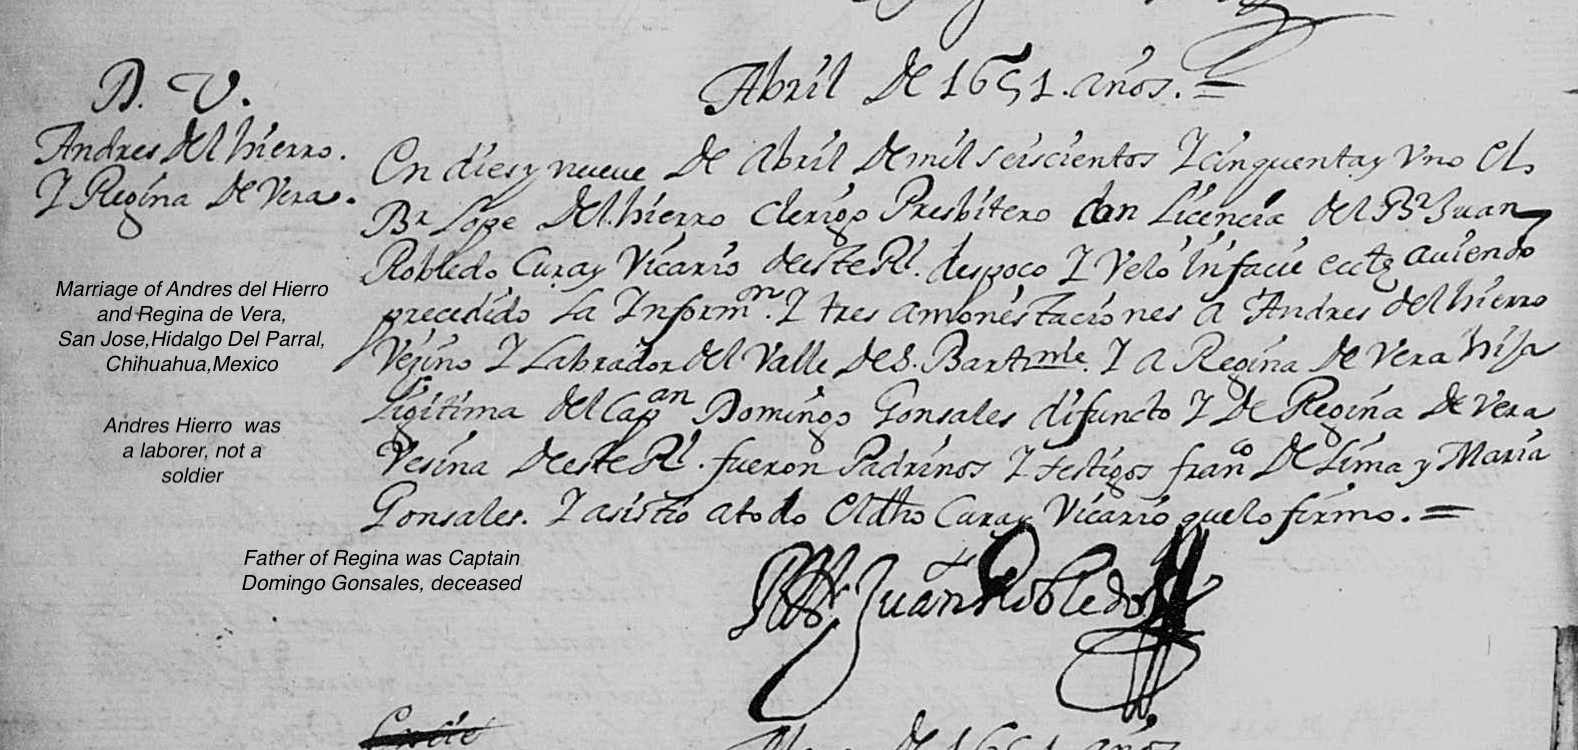 Abril de 1651. años. =
D. V.
Andres del hierro.
Y Regina de Vera.
En dies y nueue de Abril de mil seiscientos Y cinquenta y vno El
Br Lope del hierro Clerigo Presbitero con Licencia del Br Juan
Robledo Cura y Vicario deeste Rl. desposo Y Velo in facie ecctę auiendo
precedido la Informon. Y tres amonestaciones a Andres del hierro
Vezino Y Labrador del Valle de S. Bartme. Y a Regina de Vera hija
Ligitima del Capan Domingo Gonsales difuncto Y de Regina de Vera
Vesina deeste Rl. fueron Padrinos Y testigos frano de Lima y Maria
Gonsales. Y asistio a todo El dho Cura y Vicario que lo firmo. =
Br Juan Robledo
Marriage of Andres del Hierro
and Regina de Vera,
San Jose,Hidalgo Del Parral,
Chihuahua,Mexico
Andres Hierro was
a laborer, not a
soldier
Father of Regina was Captain
Domingo Gonsales, deceased
de 1651 años